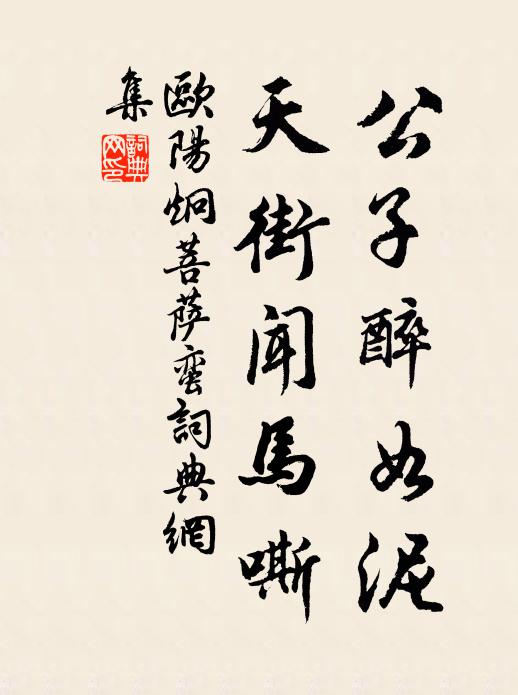 公子醉如泥
天街聞馬嘶
歐陽炯菩薩蠻詞典網
集
詞典網印